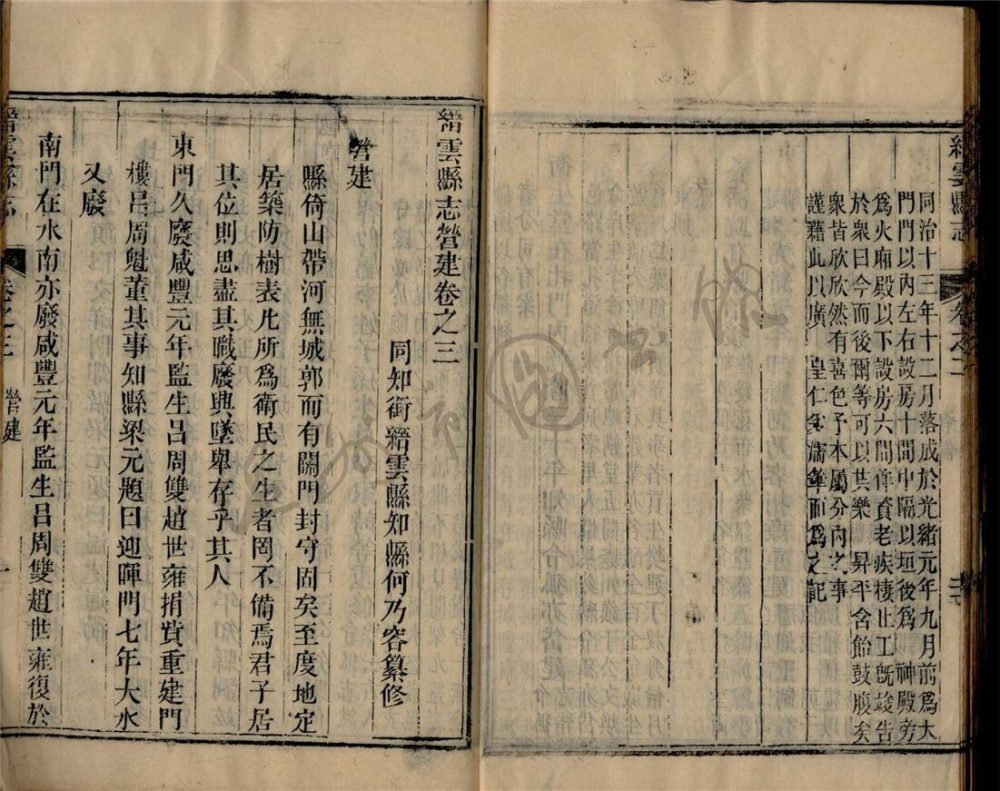 縉雲縣志
卷之二
同治十三年十二月落成於光緒元年九月前爲大
門門以內左右設房十間中隔以垣後爲 神殿旁
爲火廂殿以下設房六間俾資老疾棲止工旣竣告
於衆曰今而後爾等可以共樂 昇平含飴鼓腹矣
衆皆欣欣然有喜色予本屬分內之事
謹藉此以廣 皇仁 濡筆而爲之記
縉雲縣志營建卷之三
同知銜縉雲縣知縣何乃容纂修
營建
縣倚山帶河無城郭而有關門封守固矣至度地定
居築防樹表凡所爲衛民之生者罔不備焉君子居
其位則思盡其職廢興墜舉存乎其人
東門久廢咸豐元年監生呂周雙趙世雍捐貲重建門
樓呂周魁董其事知縣梁元題曰迎暉門七年大水
又廢
南門在水南亦廢咸豐元年監生呂周雙趙世雍復於
縉雲縣志
卷之三
營建
一